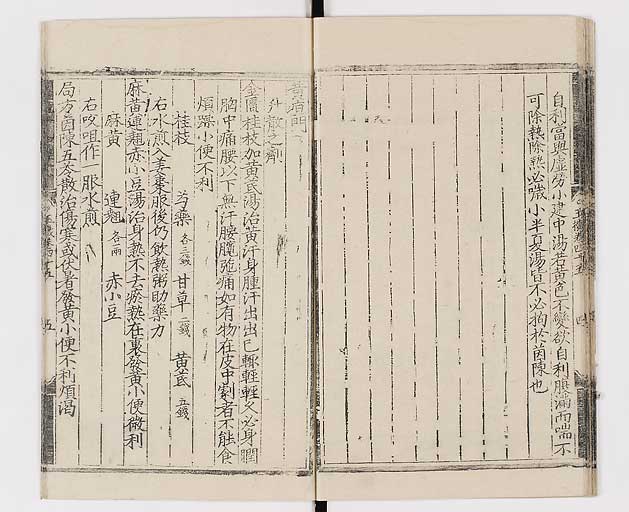 自利當與虛勞小建中湯若黃色不變欲自利腹滿而喘不
可除熱除熱必噦小半夏湯皆不必拘於茵陳也
黃疸門
升散之劑
金匱桂枝加黃芪湯治黃汗身腫汗出出已輒輕輕久必身瞤
胸中痛腰以下無汗腰髖弛痛如有物在皮中劇者不能食
煩躁小便不利
桂枝 芍藥 各三錢 甘草 二錢 黃芪 五錢
右水煎入姜棗服後仍飲熱粥助藥力
麻黃連翹赤小豆湯治身熱不去瘀熱在裏發黃小便微利
麻黃 連翹 各一兩 赤小豆
右㕮咀作一服水煎
局方茵陳五苓散治傷寒或伏暑發黃小便不利煩渴